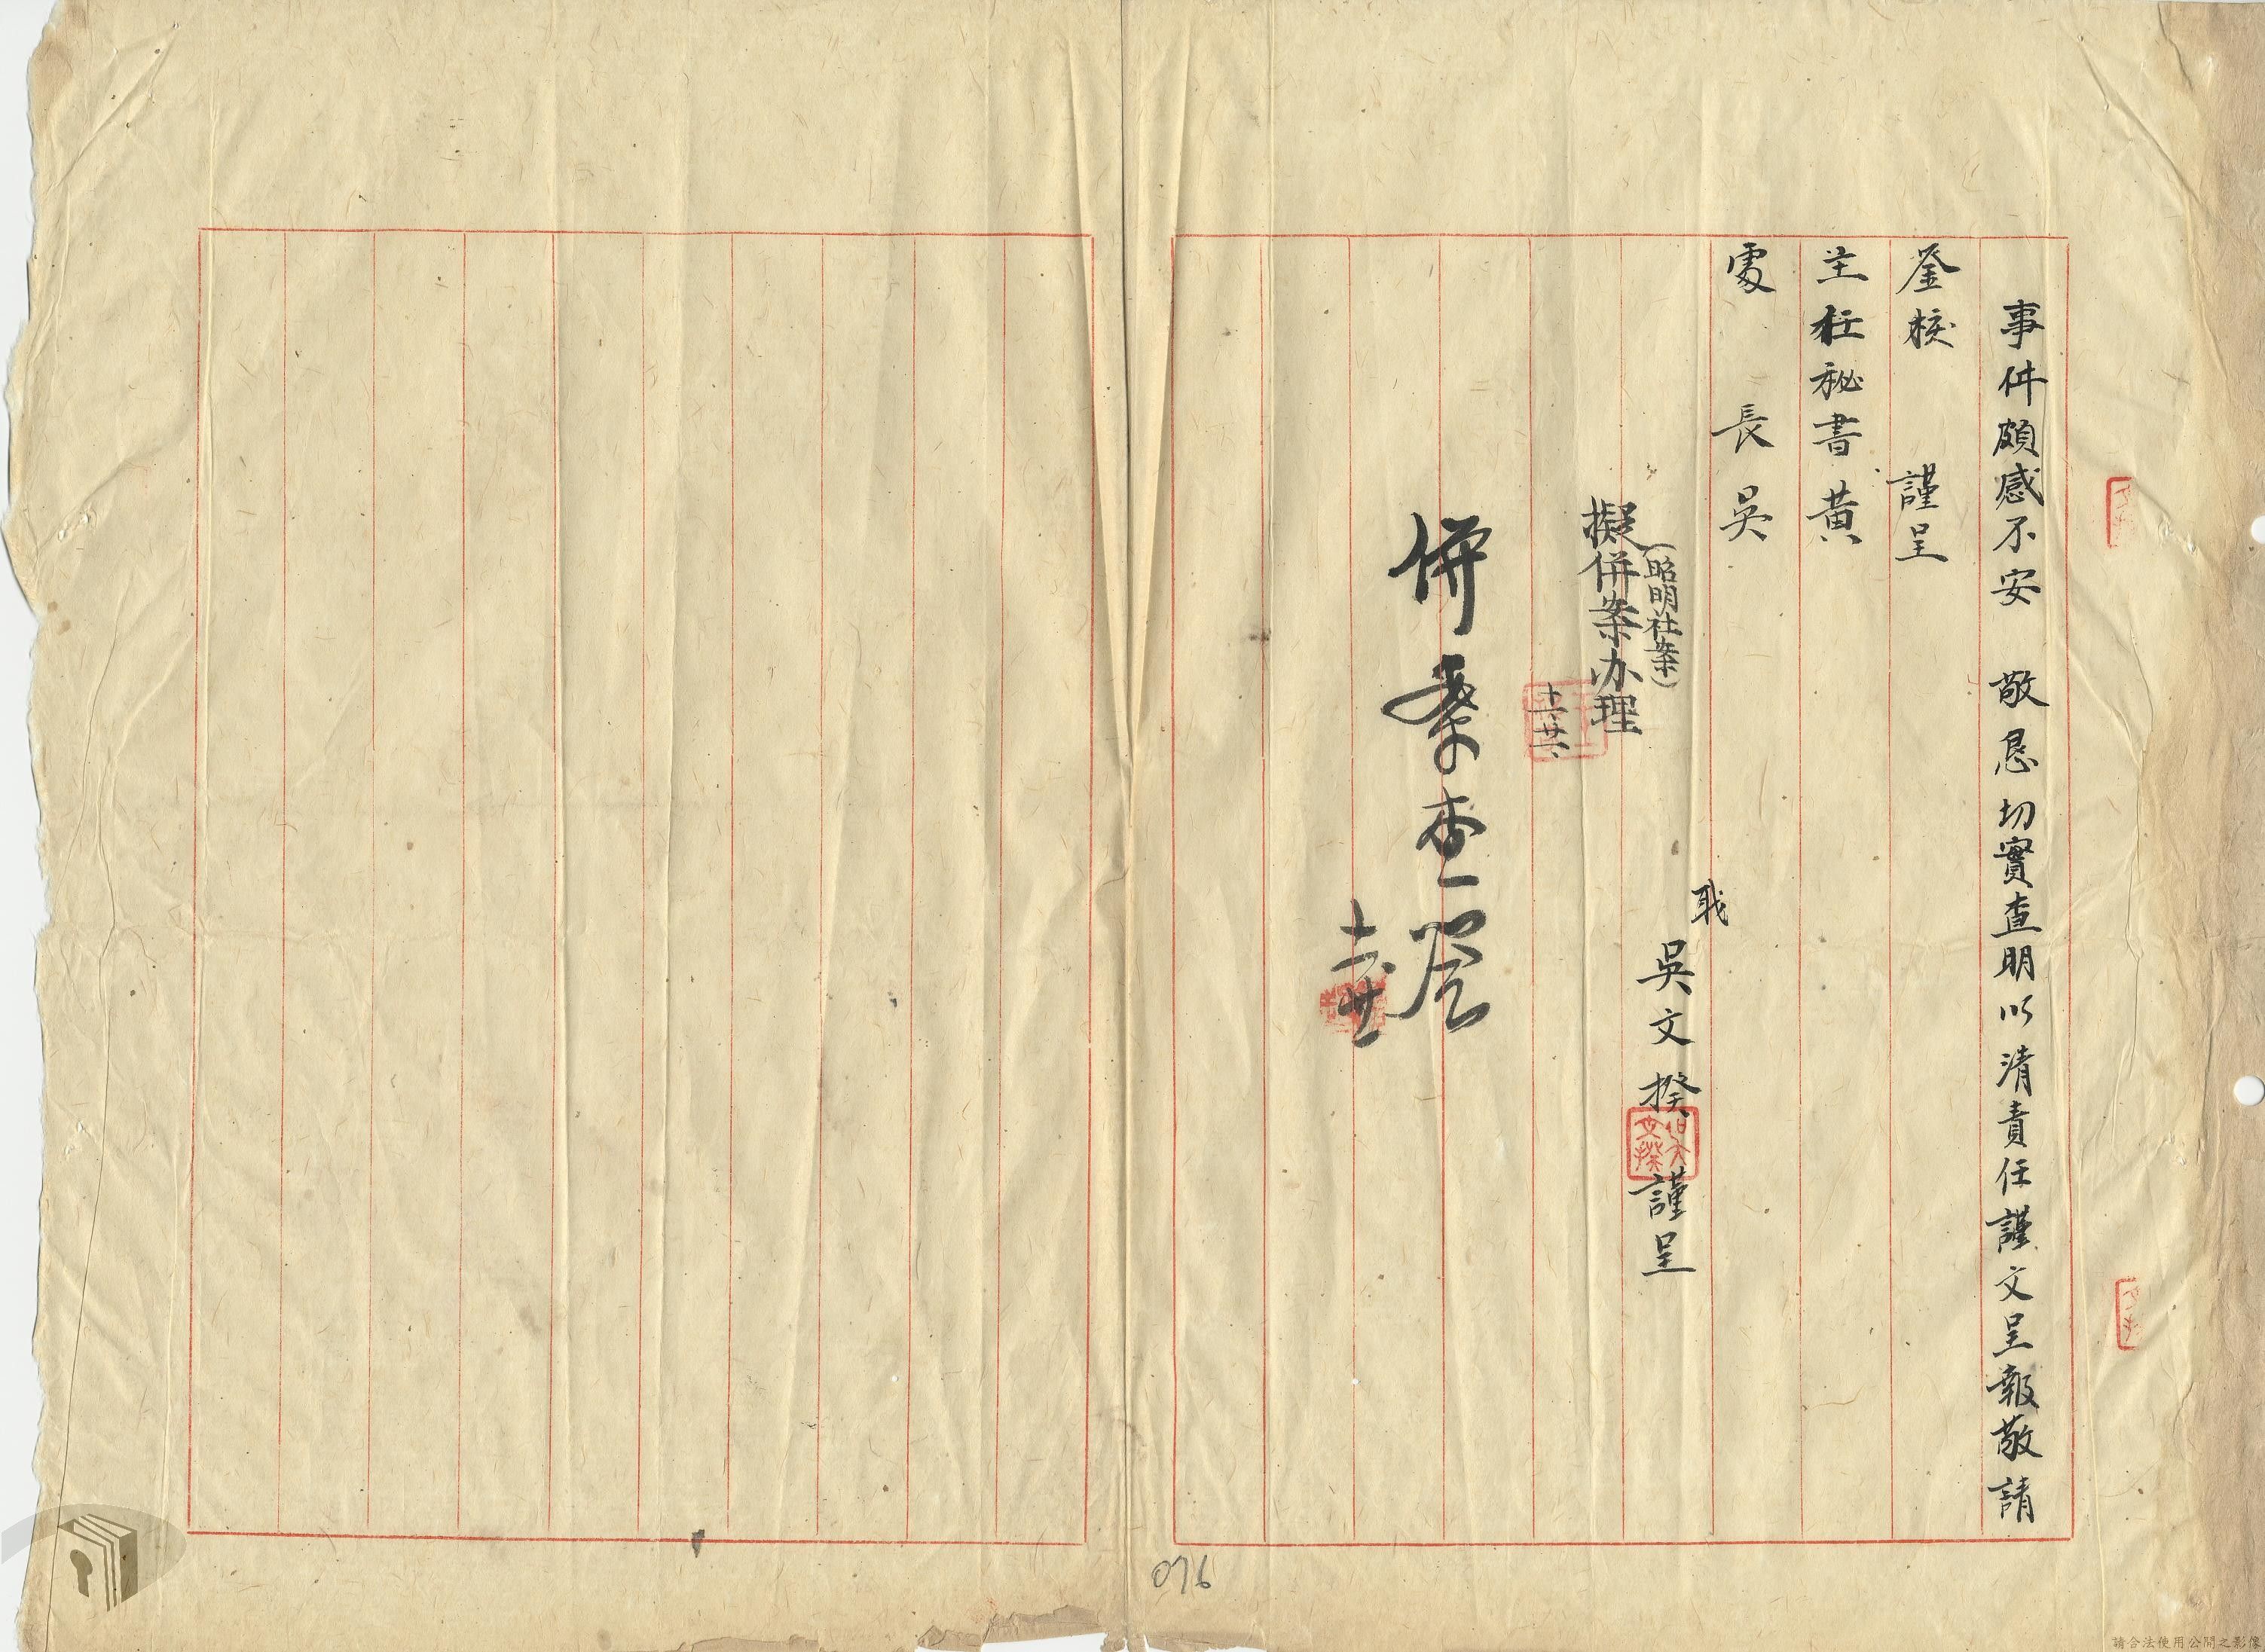 事件頗感不安　敬恳切實查明以清責任謹文呈報敬請
鉴核　謹呈
主任秘書黃
處　長　吳
职
吳文揆謹呈
(昭明社案)
擬併案办理
十二、廿六、
併案查签
076
請合法使用公開之影像